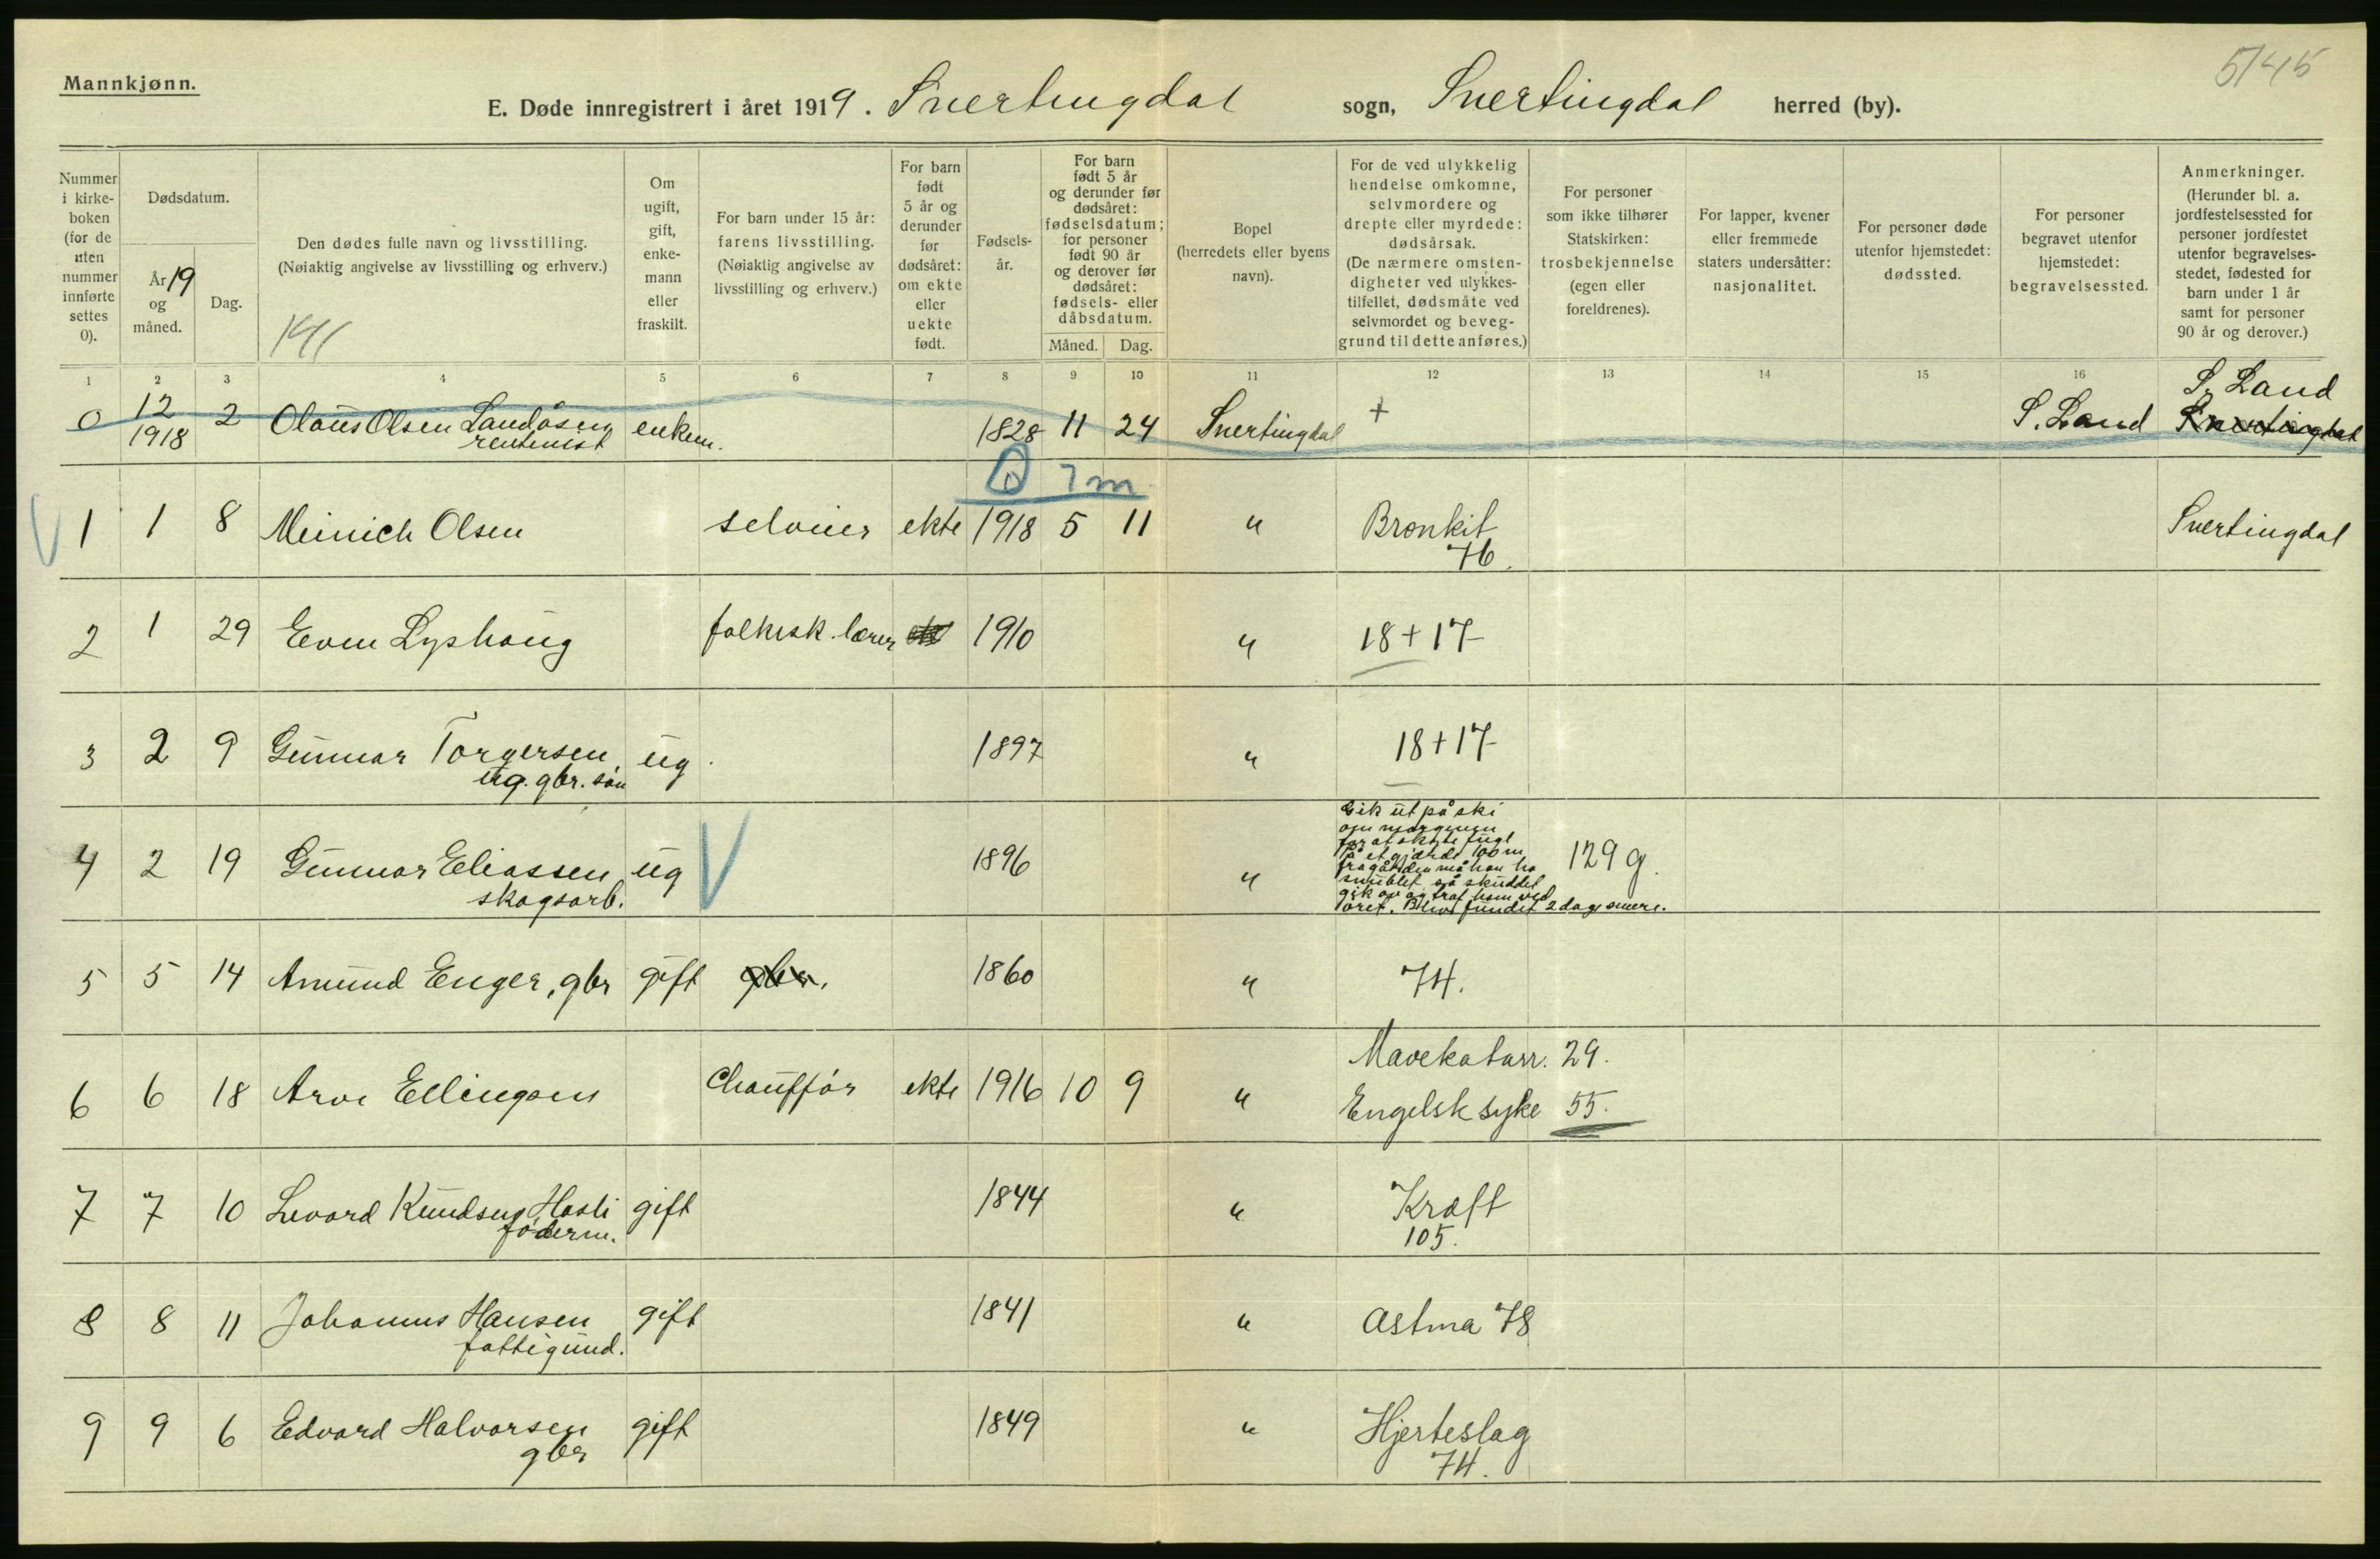 Mannkjønn.
5145
E. Døde innregistrert i året 1919. Snertingdal sogn, Snertingdal herred (by).
Nummer i kirke-boken (for de uten nummer innførte settes 0).
Dødsdatum.
År 19 og måned.
Dag.
Den dødes fulle navn og livsstilling.
(Nøiaktig angivelse av livsstilling og erhverv.)
Om ugift, gift, enke-mann eller fraskilt.
For barn under 15 år: farens livsstilling. (Nøiaktig angivelse av livsstilling og erhverv.)
For barn født 5 år og derunder før dødsåret: om ekte eller uekte født.
Fødsels-år.
For barn født 5 år og derunder før dødsåret: fødselsdatum; for personer født 90 år og derover før dødsåret: fødsels- eller dåbsdatum.
Måned. Dag.
Bopel (herredets eller byens navn).
For de ved ulykkelig hendelse omkomne, selvmordere og drepte eller myrdede: dødsårsak. (De nærmere omsten-digheter ved ulykkes-tilfellet, dødsmåte ved selvmordet og beveg-grund til dette anføres.)
For personer som ikke tilhører Statskirken: trosbekjennelse (egen eller foreldrenes).
For lapper, kvener eller fremmede staters undersåtter: nasjonalitet.
For personer døde utenfor hjemstedet: dødssted.
For personer begravet utenfor hjemstedet: begravelsessted.
Anmerkninger. (Herunder bl. a. jordfestelsessted for personer jordfestet utenfor begravelses-stedet, fødested for barn under 1 år samt for personer 90 år og derover.)
1 2 3 4 5 6 7 8 9 10 11 12 13 14 15 16
0 12 1918 2 Olaus Olsen Landåsen rentenist enkem. 1828 11 24 Snertingdal + S. Land S. Land Snertingdal
7 m
1 1 8 Meinich Olsen selveier ekte 1918 5 11 " Bronkit 76. Snertingdal
2 1 29 Even Lyshaug folkesk. lærer 1910 " 18+17
3 2 9 Gunnar Torgersen, ug. gbr. søn ug. 1897 " 18+17
4 2 19 Gunnar Eliassen skogsarb. ug 1896 " Gik ut på ski
om morgenen
for at skyte fugl
På et gjærde 100 m
fra gården må han ha
snublet så skuddet
gik av og traf ham ved
øret. Blev fundet 2 dage senere.
129 g.
5 5 14 Amund Enger, gbr gift gbr. 1860 " 74.
6 6 18 Arve Ellingsen Chauffør ekte 1916 10 9 " Mavekatarr. 29.
Engelsk syke 55.
7 7 10 Levard Knudsen Hasli føderm. gift 1844 " Kræft 105.
8 8 11 Johannes Hansen fattigund. gift 1841 " Astma 78
9 9 6 Edvard Halvorsen gbr gift 1849 " Hjerteslag 74.